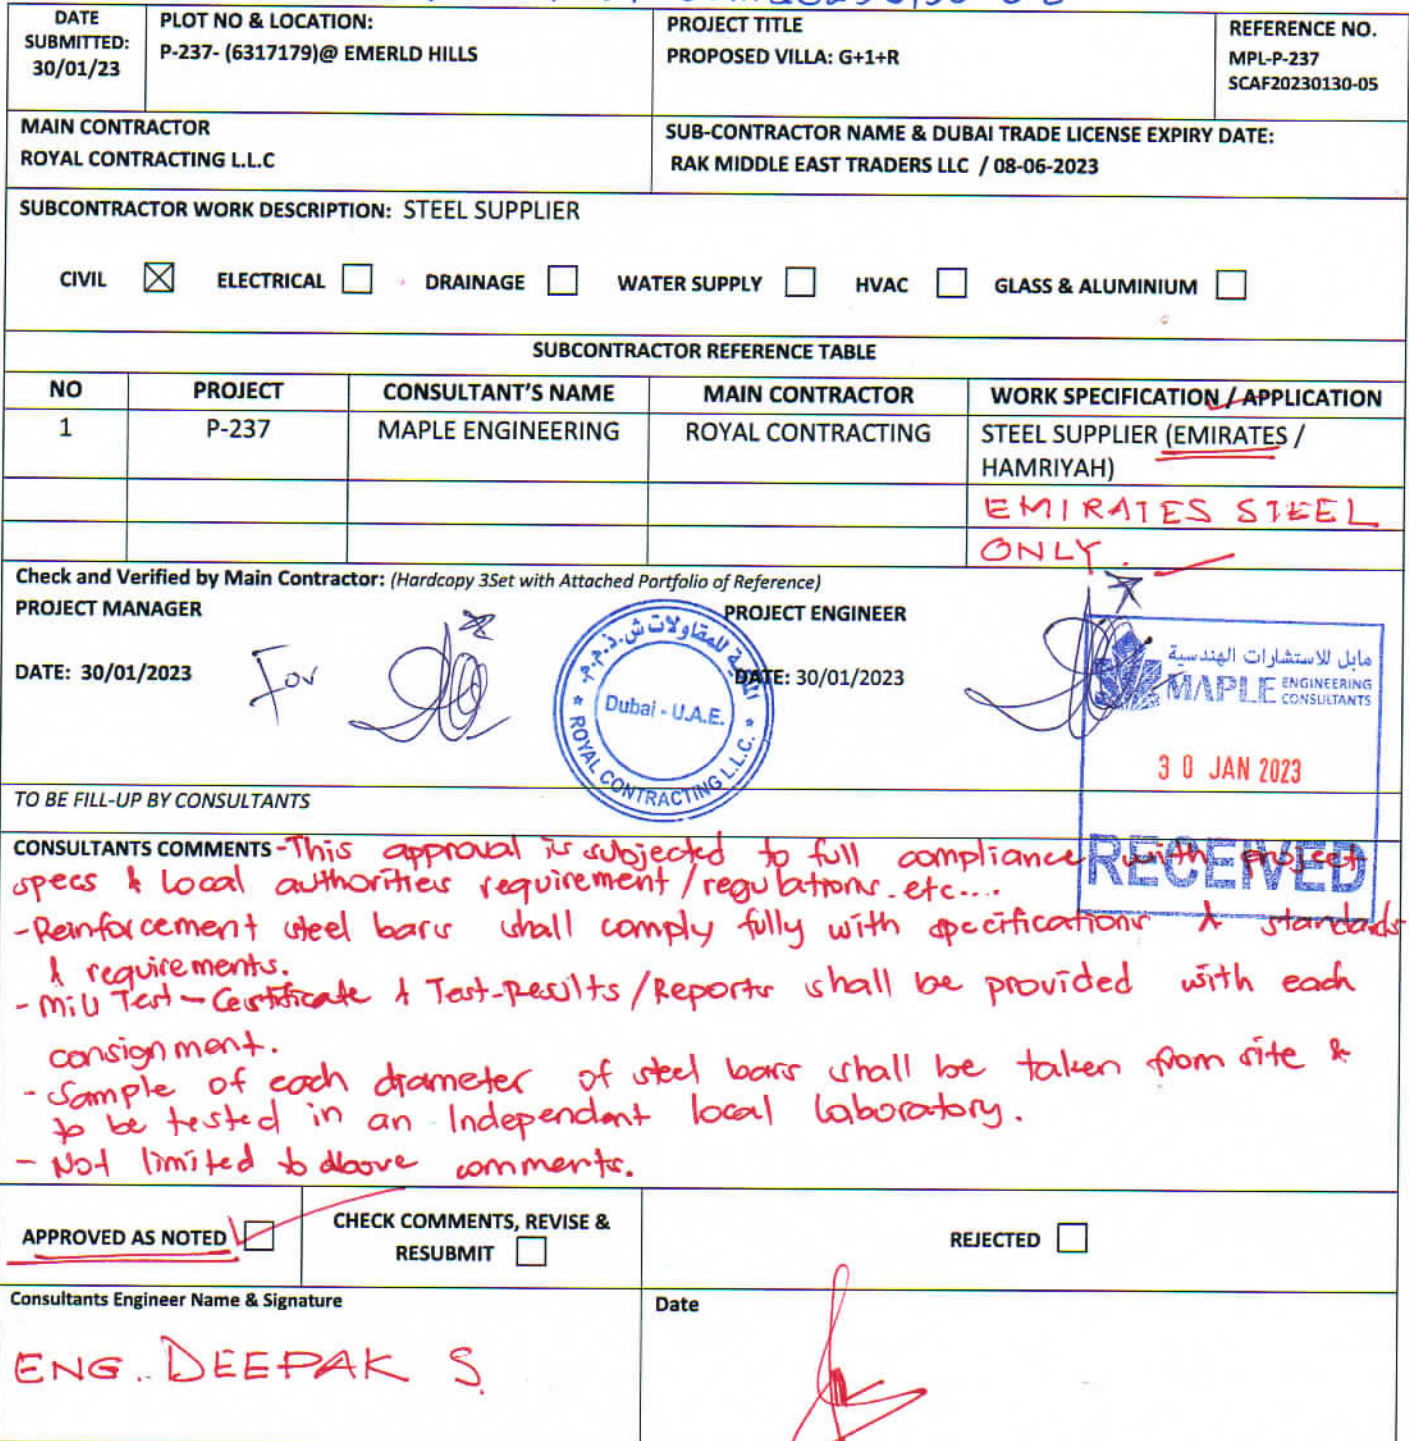 DATE SUBMITTED: 30/01/23
PLOT NO & LOCATION:
P-237- (6317179)@ EMERLD HILLS
PROJECT TITLE
PROPOSED VILLA: G+1+R
REFERENCE NO.
MPL-P-237
SCAF20230130-05
MAIN CONTRACTOR
ROYAL CONTRACTING L.L.C
SUB-CONTRACTOR NAME & DUBAI TRADE LICENSE EXPIRY DATE:
RAK MIDDLE EAST TRADERS LLC / 08-06-2023
SUBCONTRACTOR WORK DESCRIPTION: STEEL SUPPLIER
CIVIL ELECTRICAL DRAINAGE WATER SUPPLY HVAC GLASS & ALUMINIUM
SUBCONTRACTOR REFERENCE TABLE
NO PROJECT CONSULTANT'S NAME MAIN CONTRACTOR WORK SPECIFICATION / APPLICATION
1 P-237 MAPLE ENGINEERING ROYAL CONTRACTING STEEL SUPPLIER (EMIRATES /
HAMRIYAH)
EMIRATES STEEL
ONLY.
Check and Verified by Main Contractor: (Hardcopy 3Set with Attached Portfolio of Reference)
PROJECT MANAGER
PROJECT ENGINEER
DATE: 30/01/2023
For
DATE: 30/01/2023
للمقاولات ش.ذ.م.م.
Dubai - U.A.E.
ROYAL CONTRACTING L.L.C.
مابل للاستشارات الهندسية
MAPLE ENGINEERING CONSULTANTS
30 JAN 2023
RECEIVED
TO BE FILL-UP BY CONSULTANTS
CONSULTANTS COMMENTS -This approval is subjected to full compliance with project
specs & Local authorities requirement/regulations.etc....
-Reinforcement steel bars shall comply fully with specifications & standards
& requirements.
- Mill Test-Certificate & Test-Results/Reports shall be provided with each
consignment.
- Sample of each diameter of steel bars shall be taken from site &
to be tested in an Independent local laboratory.
- Not limited to above comments.
APPROVED AS NOTED
CHECK COMMENTS, REVISE &
RESUBMIT
REJECTED
Consultants Engineer Name & Signature
Date
ENG. DEEPAK S.